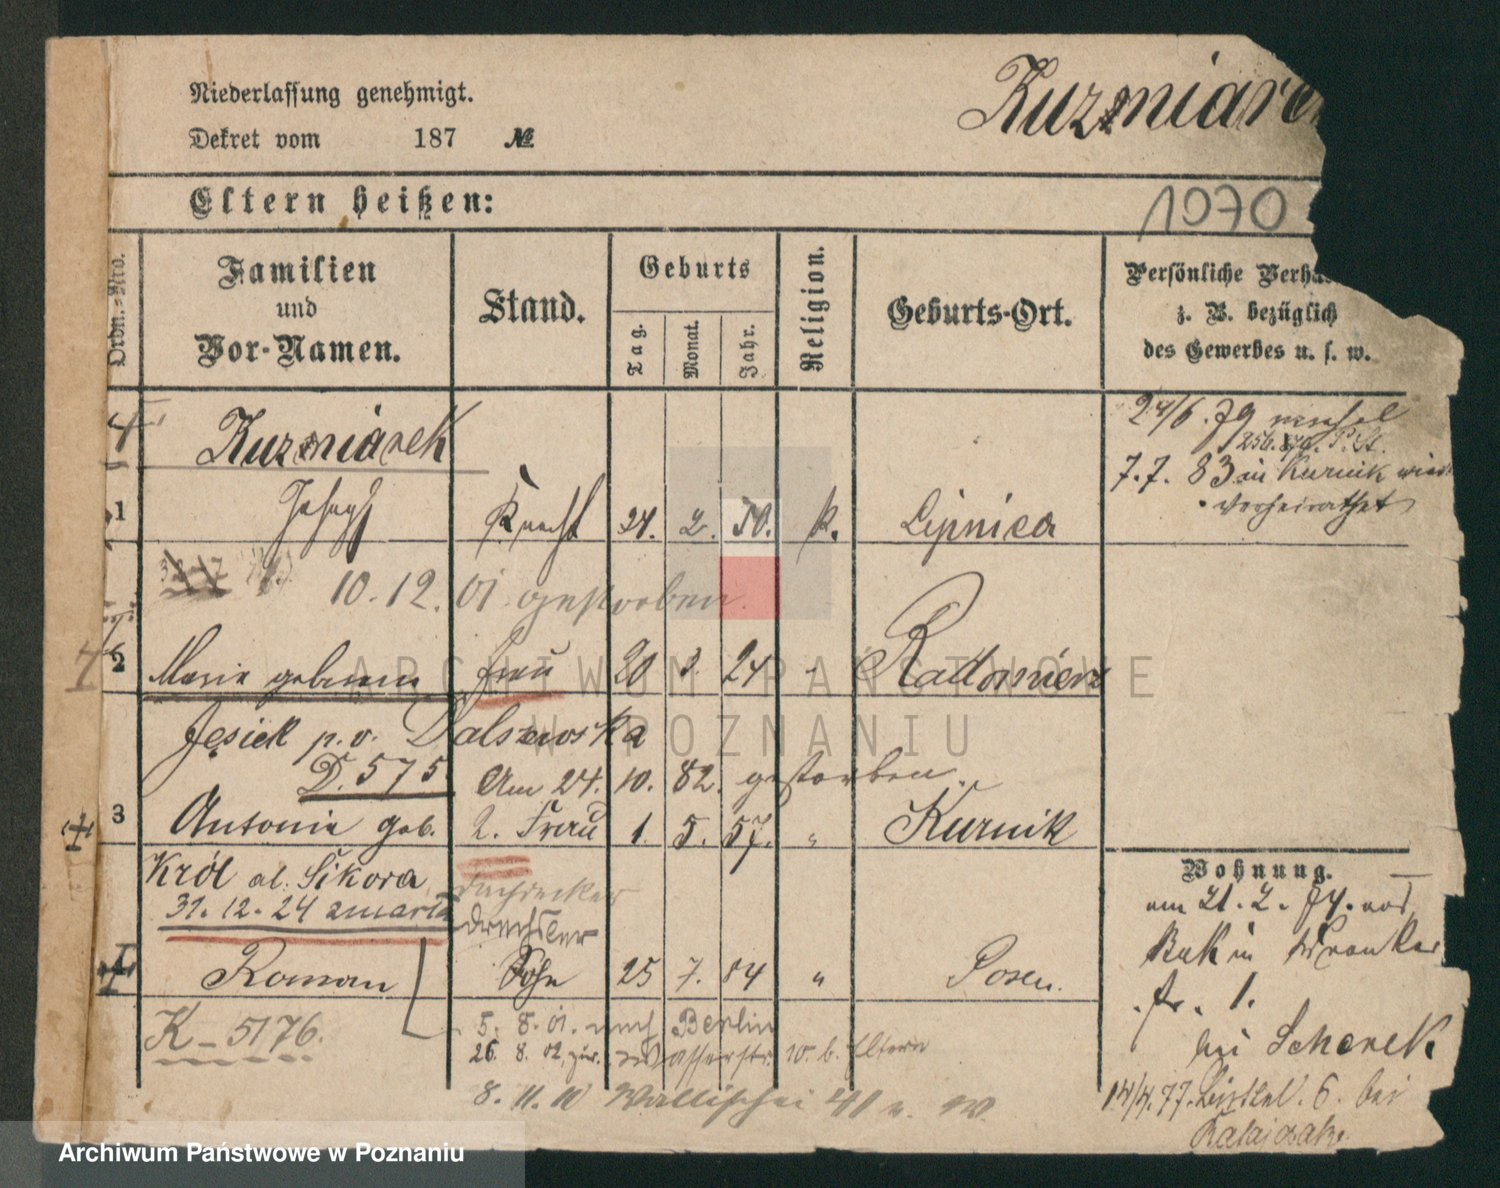 Niederlassung genehmigt.
Dekret vom 187 №
Kuzmiarek
1070
Eltern heißen:
Ordn.-Nro.
Familien
und
Vor-Namen.
Stand.
Geburts
Tag.
Monat.
Jahr.
Religion.
Geburts-Ort.
Persönliche Verhä
z. B. bezüglich
des Gewerbes u. s. w.
Kuzmiarek
1 Joseph Knecht 24. 2. 50. k. Lipnica
24/6. 79
7.7. 83 in Kurnik wied
verheirathet
10.12. 01 gestorben
2 Marie geborene Frau 20 3. 24 " Radomierz
Jęsiek p.v. Dalszewska
D. 575 Am 24. 10. 82. gestorben.
3 Antonie geb. 2. Frau 1. 5. 57. " Kurnik
Król al. Sikora
31. 12. 24 zmarła
Dachdecker
Drechsler
4 Roman Sohn 25 7. 84 " Posen.
K – 5176.
5. 8. 01. nach Berlin
26. 8. 02. zur. Wasserstr. 10. b. Eltern
8. 11. 10 Wallischei
Wohnung.
am 21. 2. 74. von
Buk in
fr. 1.
bei Scherek
14/4. 77. 6. bei
Ratajczak
ARCHIWUM PAŃSTWOWE
W POZNANIU
Archiwum Państwowe w Poznaniu